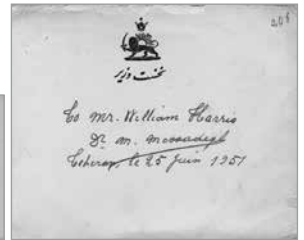 208
نخست وزیر
To Mr. William Harris
Dr. M. Mossadegh
Teheran, le 25 Juin 1951